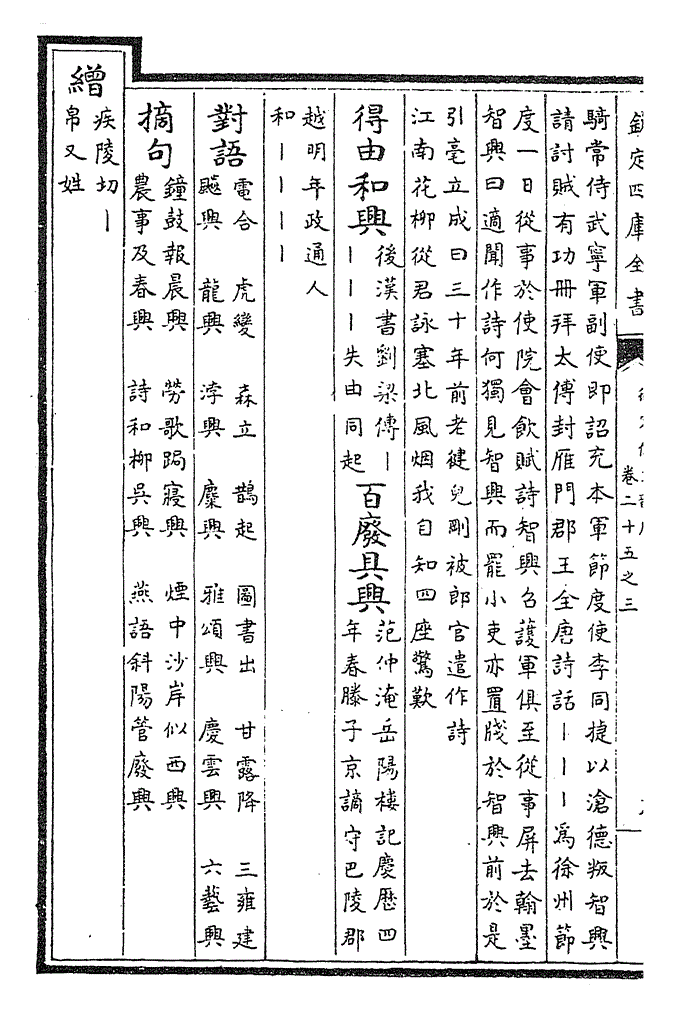 欽定四庫全書
卷二十五之三
騎常侍武寧軍副使即詔充本軍節度使李同捷以滄德叛智興
請討賊有功冊拜太傅封雁門郡王全唐詩話丨丨丨為徐州節
度一日從事於使院會飲賦詩智興召護軍俱至從事屏去翰墨
智興曰適聞作詩何獨見智興而罷小吏亦置牋於智興前於是
引毫立成曰三十年前老健兒剛被郎官遣作詩
江南花柳從君詠塞北風烟我自知四座驚歎
得由和興後漢書劉梁傳丨
丨丨丨失由同起
百廢具興范仲淹岳陽樓記慶歷四
年春滕子京謫守巴陵郡
越明年政通人
和丨丨丨丨
對語電合 虎變 森立 鵲起 圖書出 甘露降 三雍建
飈興 龍興 浡興 麋興 雅頌興 慶雲興 六藝興
摘句鐘鼓報晨興 勞歌跼寢興 煙中沙岸似西興
農事及春興 詩和柳吳興 燕語斜陽管廢興
繒疾陵切丨
帛又姓